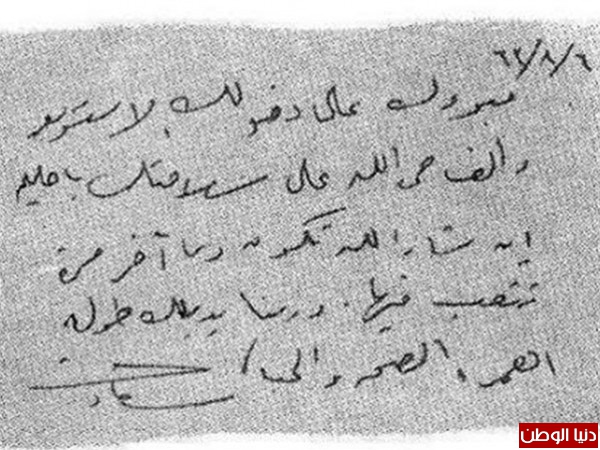 ٦٢/٨/٦
مبروك على دخولك الاستوديو
والف حمدالله على سلامتك يا حليم
ان شاء الله تكون دى آخر مرة
تتعب فيها. وربنا يديلك طول
العمر، الصحه و
سعاد
دنيا الوطن